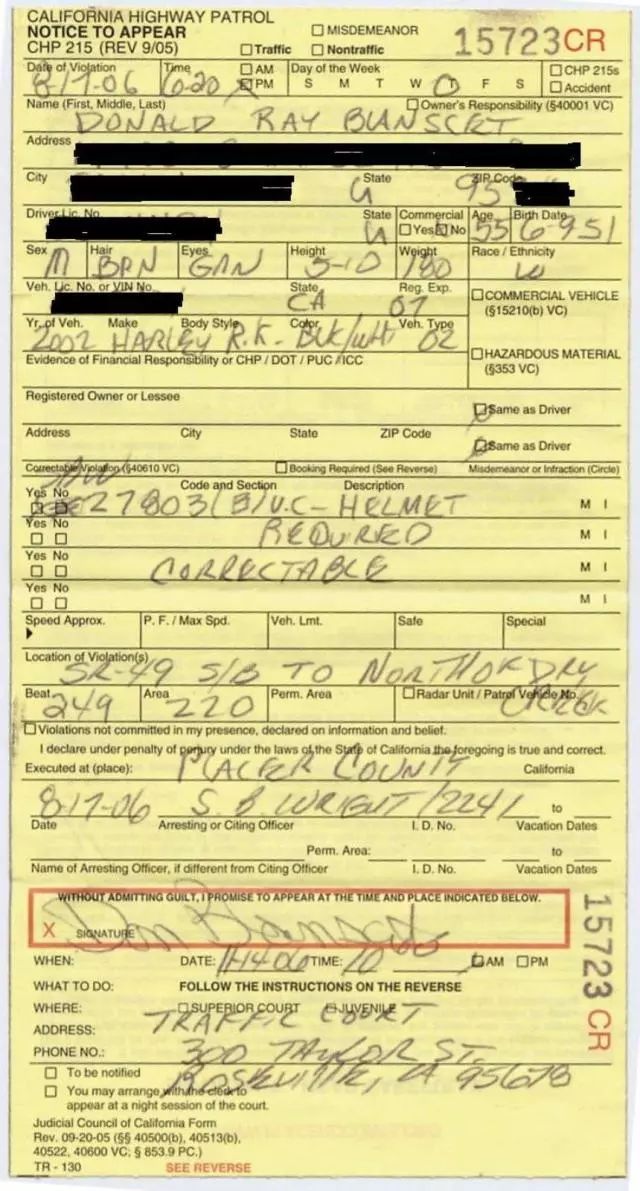 CALIFORNIA HIGHWAY PATROL
NOTICE TO APPEAR
CHP 215 (REV 9/05)
MISDEMEANOR
Traffic Nontraffic
15723CR
Date of Violation Time AM PM Day of the Week S M T W T F S CHP 215s Accident
8/17-06 6:20
Name (First, Middle, Last) Owner's Responsibility (§40001 VC)
DONALD RAY BLANSCET
Address
City State ZIP Code
CA 95
Driver Lic. No. State Commercial Age Birth Date
CA Yes No 55 6-951
Sex Hair Eyes Height Weight Race / Ethnicity
M BRN GRN 5-10 180 W
Veh. Lic. No. or VIN No. State Reg. Exp.
CA 07
COMMERCIAL VEHICLE
(§15210(b) VC)
Yr. of Veh. Make Body Style Color Veh. Type
2002 HARLEY R.K. BLK/WHI 02
HAZARDOUS MATERIAL
(§353 VC)
Evidence of Financial Responsibility or CHP / DOT / PUC / ICC
Registered Owner or Lessee
Same as Driver
Address City State ZIP Code
Same as Driver
Correctable Violation (§40610 VC) Booking Required (See Reverse) Misdemeanor or Infraction (Circle)
Yes No Code and Section Description
27803(B) V.C- HELMET M I
Yes No REQUIRED M I
Yes No CORRECTABLE M I
Yes No M I
Speed Approx. P. F. / Max Spd. Veh. Lmt. Safe Special
Location of Violation(s)
SR-49 S/B TO NORTH OF DRY
Beat Area Perm. Area Radar Unit / Patrol Vehicle No.
249 220 CREEK
Violations not committed in my presence, declared on information and belief.
I declare under penalty of perjury under the laws of the State of California the foregoing is true and correct.
Executed at (place): PLACER COUNTY California
8-17-06 S. B. WRIGHT/2241 to
Date Arresting or Citing Officer I. D. No. Vacation Dates
Perm. Area: to
Name of Arresting Officer, if different from Citing Officer I. D. No. Vacation Dates
WITHOUT ADMITTING GUILT, I PROMISE TO APPEAR AT THE TIME AND PLACE INDICATED BELOW.
X SIGNATURE Don Blanscet
15723 CR
WHEN: DATE: TIME: 10 00 AM PM
WHAT TO DO: FOLLOW THE INSTRUCTIONS ON THE REVERSE
WHERE: SUPERIOR COURT JUVENILE
TRAFFIC COURT
ADDRESS:
300 TAYLOR ST.
PHONE NO.:
ROSEVILLE, CA 95678
To be notified
You may arrange with the clerk to
appear at a night session of the court.
Judicial Council of California Form
Rev. 09-20-05 (§§ 40500(b), 40513(b),
40522, 40600 VC; § 853.9 PC.)
TR - 130 SEE REVERSE